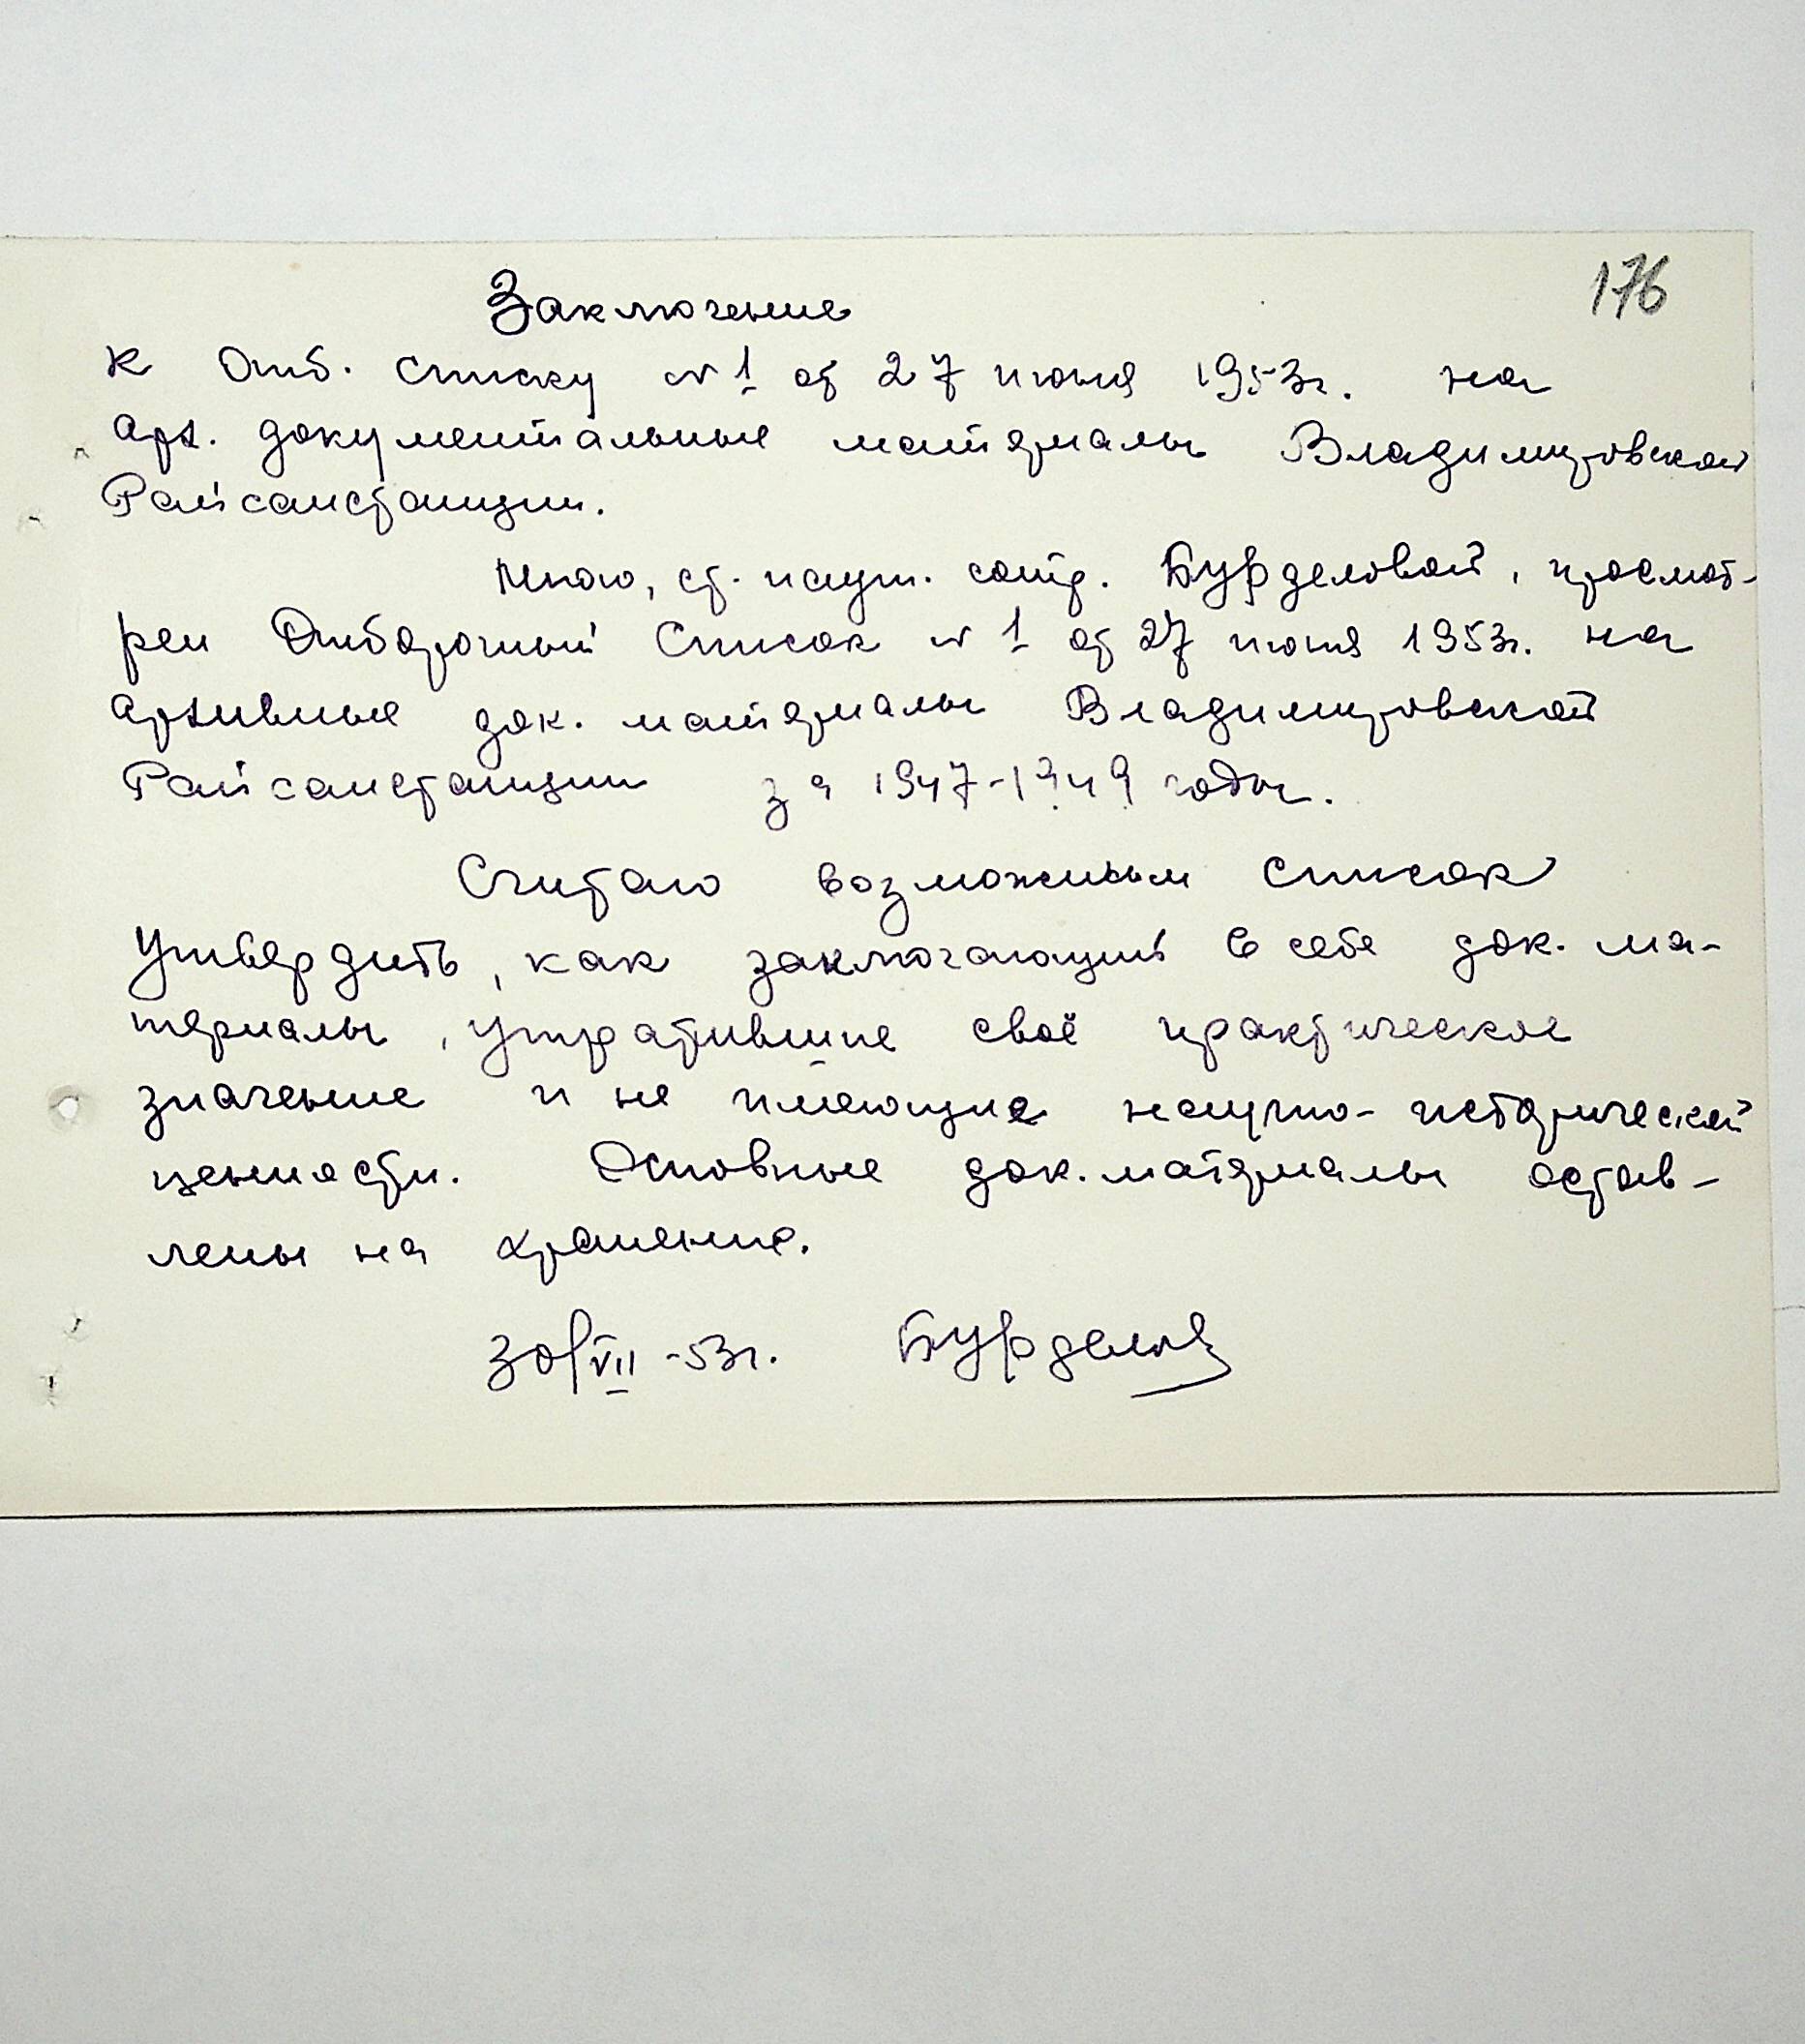 176
Заключение
к Отб. списку № 1 от 27 июня 1953г. на
арх. документальные материалы Владимировской
Райсанстанции.
Мною, ст. научн. сотр. Бурделовой, просмот-
рен Отборочный список № 1 от 27 июня 1953г. на
архивные док. материалы Владимировской
Райсанстанции за 1947-1949 годы.
Считаю возможным список
утвердить, как заключающий в себе док. ма-
териалы, утратившие своё практическое
значение и не имеющие научно-исторической
ценности. Основные док. материалы остав-
лены на хранение.
30/VII-53г. Бурделова